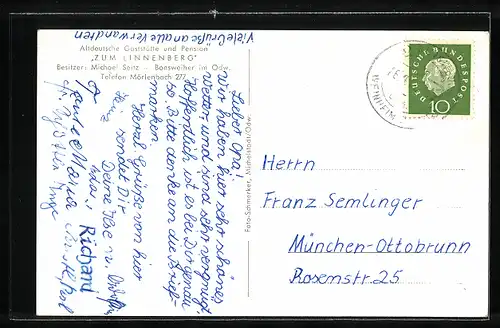 Altdeutsche Gaststätte und Pension
„ZUM LINNENBERG"
Besitzer: Michael Seitz - Bonsweiher im Odw.
Telefon Mörlenbach 277
Viele Grüße an alle Verwandten
Lieber Opa!
Wir haben hier sehr schönes
Wetter und sind sehr vergnügt.
Hoffentlich ist es bei Dir genau
so. Bitte denke an die Brief-
marken.
Herzl. Grüße von hier
sendet Dir
Deine Ilse u.
Richard
Foto-Schmerker, Michelstadt/Odw.
DEUTSCHE BUNDESPOST
10
Herrn
Franz Semlinger
München-Ottobrunn
Rosenstr. 25